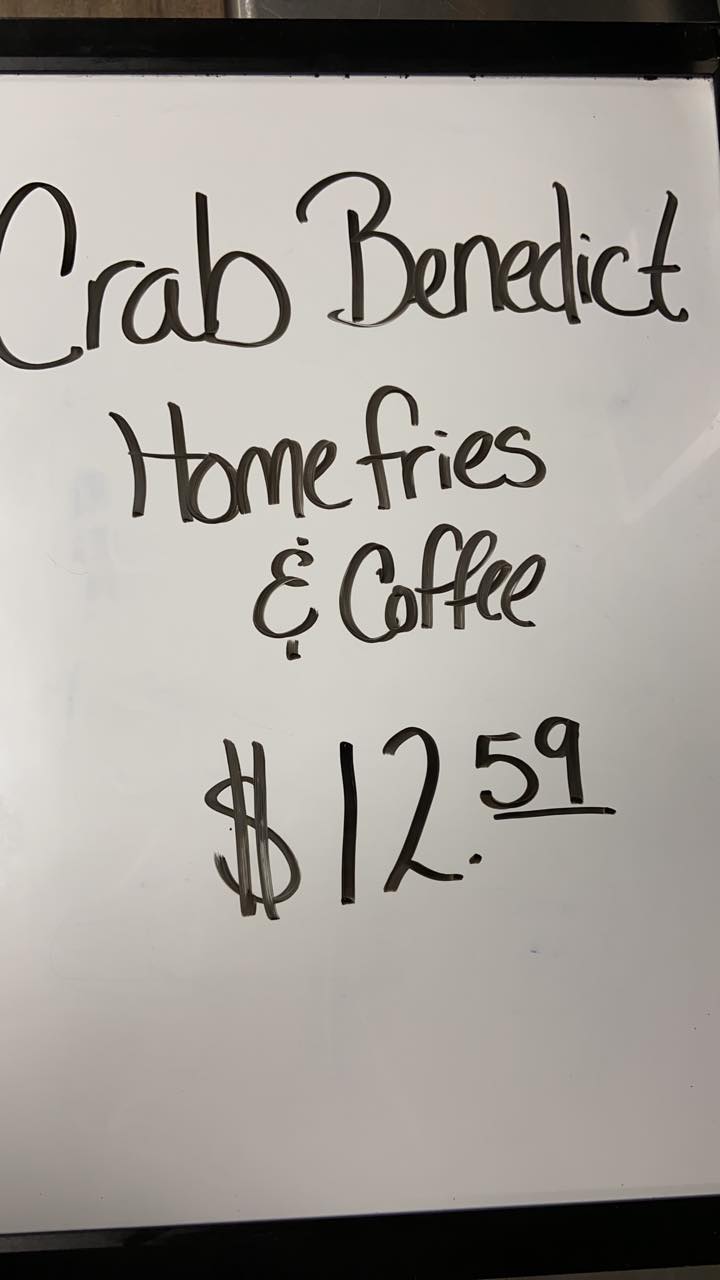 Crab Benedict
Home fries
& Coffee
$12.59